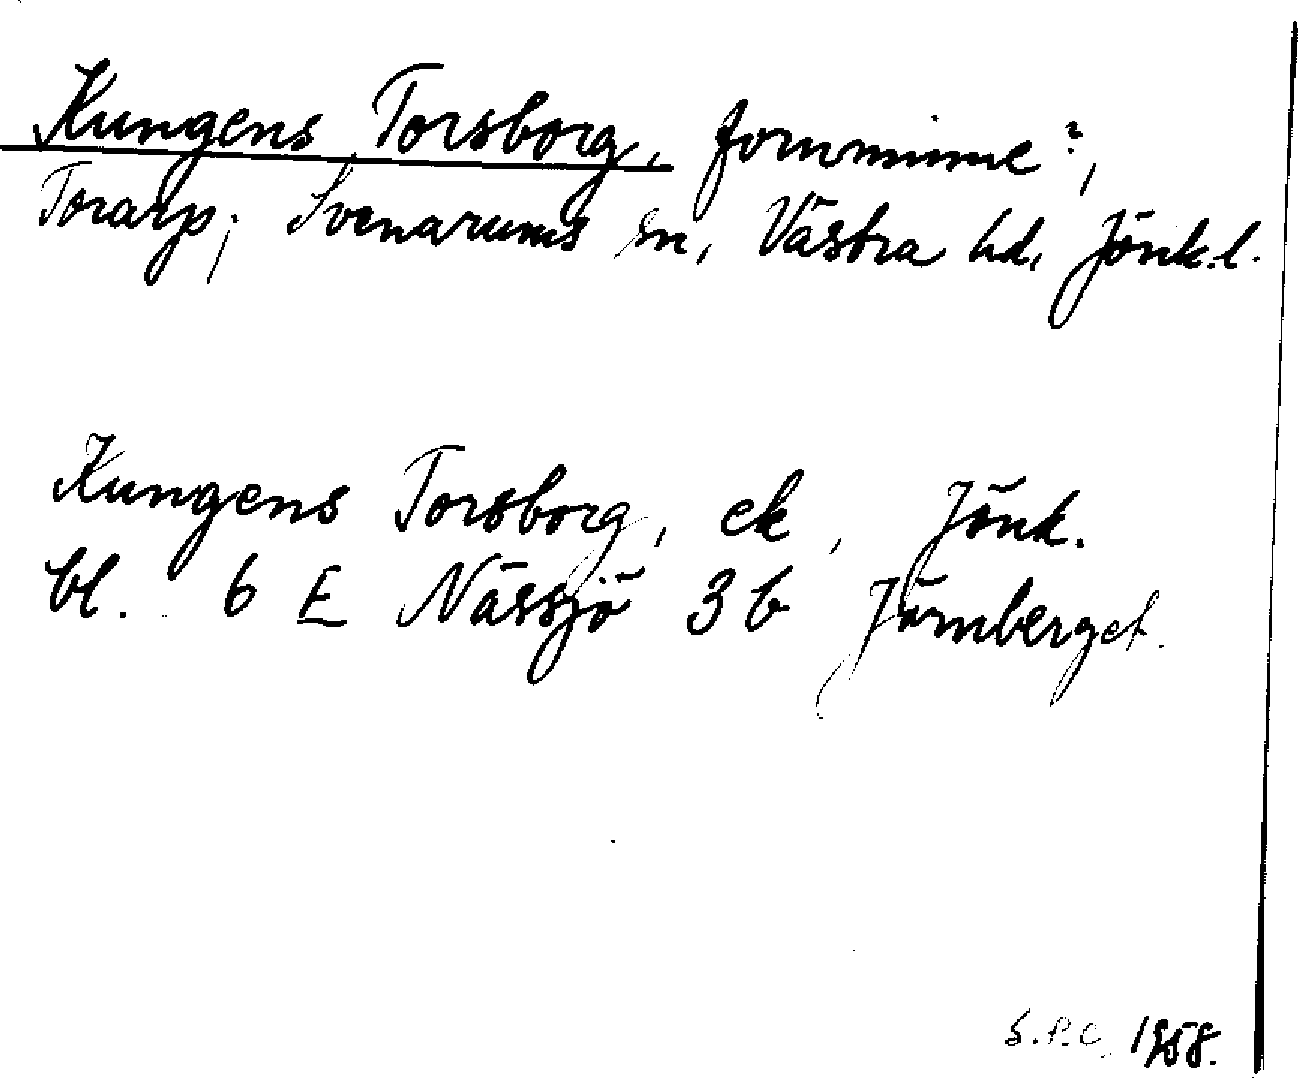 Kungens Torsborg, fornminne?,
Torarp; Svenarums sn, Västra hd, Jönk.l.
Kungens Torsborg, ek, Jönk.
bl. 6 E Nässjö 3 b Järnberget.
S.P.C. 1958.